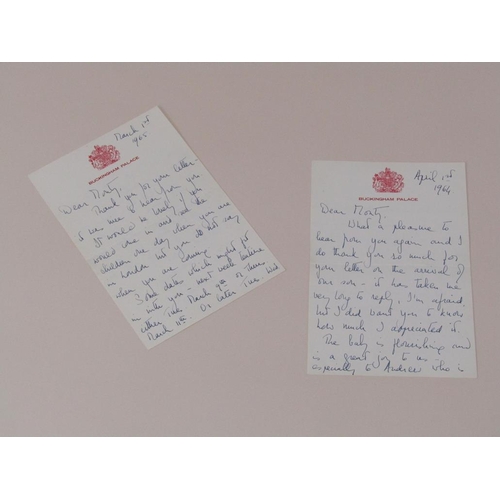 March 1st
1965
BUCKINGHAM PALACE
Dear Morty,
Thank you for your letter.
It was nice to hear from you
It would be lovely if you
would come in and see the
children one day when you are
in London but you do not say
when you are coming.
Some dates which might fit
in with you - next week
either Tues March 9th or Thurs
March 11th. Or later Tues
April 1st
1964
BUCKINGHAM PALACE
Dear Morty,
What a pleasure to
hear from you again and I
do thank you so much for
your letter on the arrival of
our son - it has taken me
very long to reply, I'm afraid,
but I did want you to know
how much I appreciated it.
The baby is flourishing and
is a great joy to us all
especially to Andrew who is